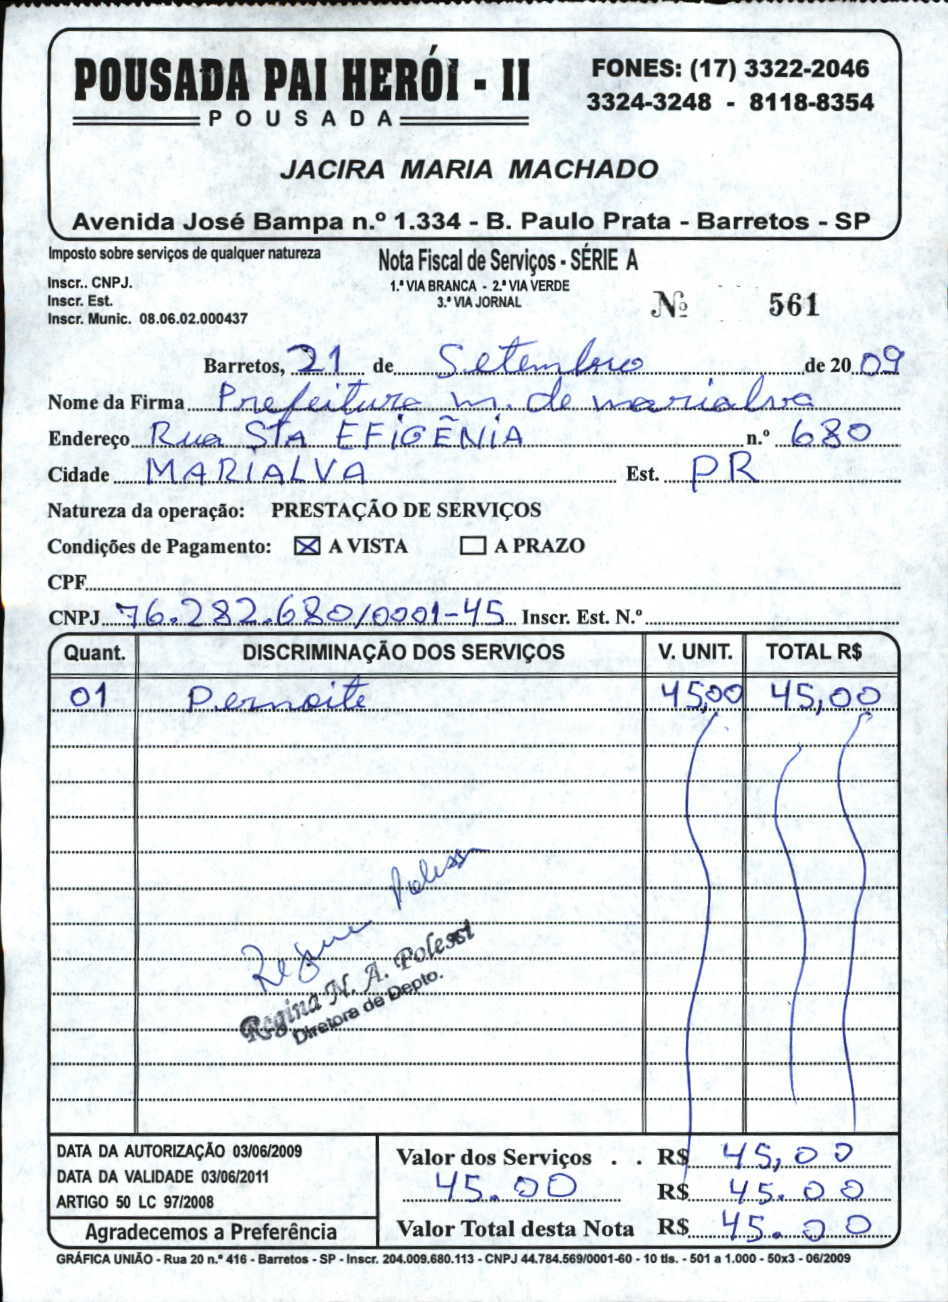 POUSADA PAI HERÓI - II
POUSADA
FONES: (17) 3322-2046
3324-3248 - 8118-8354
JACIRA MARIA MACHADO
Avenida José Bampa n.º 1.334 - B. Paulo Prata - Barretos - SP
Imposto sobre serviços de qualquer natureza
Inscr.. CNPJ.
Inscr. Est.
Inscr. Munic. 08.06.02.000437
Nota Fiscal de Serviços - SÉRIE A
1.ª VIA BRANCA - 2.ª VIA VERDE
3.ª VIA JORNAL
Nº 561
Barretos, 21 de Setembro de 2009
Nome da Firma Prefeitura m. de marialva
Endereço Rua STA EFIGÊNIA n.º 680
Cidade MARIALVA Est. PR
Natureza da operação: PRESTAÇÃO DE SERVIÇOS
Condições de Pagamento: A VISTA A PRAZO
CPF
CNPJ 76.282.680/0001-45 Inscr. Est. N.º
Quant. DISCRIMINAÇÃO DOS SERVIÇOS V. UNIT. TOTAL R$
01 Pernoite 45,00 45,00
Regina Polessi
Regina N. A. Polessi
Diretora de Depto.
DATA DA AUTORIZAÇÃO 03/06/2009
DATA DA VALIDADE 03/06/2011
ARTIGO 50 LC 97/2008
Agradecemos a Preferência
Valor dos Serviços . . R$ 45,00
45.00 R$ 45.00
Valor Total desta Nota R$ 45.00
GRÁFICA UNIÃO - Rua 20 n.º 416 - Barretos - SP - Inscr. 204.009.680.113 - CNPJ 44.784.569/0001-60 - 10 tls. - 501 a 1.000 - 50x3 - 06/2009